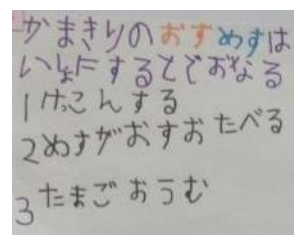 かまきりのおすめすは
いしょにするとどおなる
1 けっこんする
2 めすがおすお たべる
3 たまご おうむ